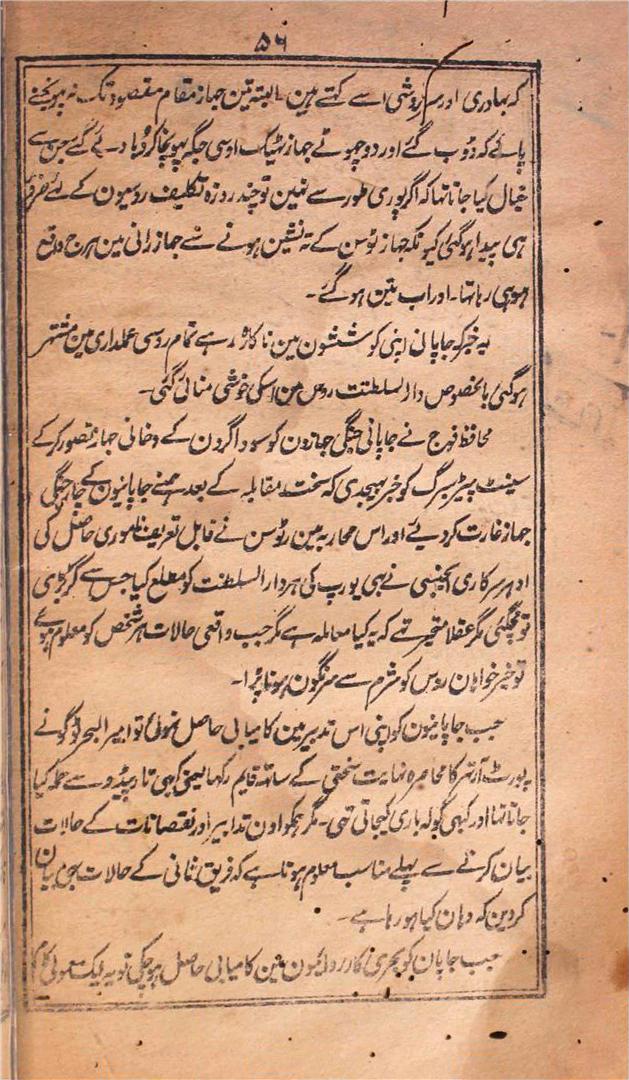 ۵۶
کہ بہادری اور سرفروشی اسے کہتے ہین ۔ البتہ تین جہاز مقام مقصود تک نہ پہونچنے
پائے کہ ڈوب گئے اور دو چھوٹے جہاز ٹھیک اوسی جگہ پہونچا کر ڈبا دے گئے جس سے
خیال کیا جاتا تھا کہ اگر پوری طور سے نہین تو چند روزہ تکلیف روسیون کے لئے ضرور
ہی پیدا ہوگئی کیونکہ جہاز کے تہ نشین ہونے سے جہاز رانی مین ہرج واقع
ہو ہی رہا تہا ۔ اور اب تین ہو گئے ۔
یہ خبر کہ جاپانی اپنی کوششون مین ناکام رہے تمام روسی عملداری مین مشتہر
ہوگئی بالخصوص دارالسلطنت روس مین اسکی خوشی منائی گئی ۔
محافظ فوج نے جاپانی جنگی جہازون کو سوداگردن کے دخانی جہاز تصور کر کے
سینٹ پیٹرسبرگ کو خبر بہیجدی کہ سخت مقابلہ کے بعد ہمنے جاپانیون کے چار جنگی
جہاز غارت کر دیے اور اس محاربہ مین روسن نے قابل تعریف ظہوری حاصل کی
ادہر سرکاری ایجنسی نے بہی یورپ کی ہر دارالسلطنت کو مطلع کیا جس سے گڑبڑی
تو مچگئی مگر عقلا متحیر تہے کہ یہ کیا معاملہ ہے مگر جب واقعی حالات ہر شخص کو معلوم ہوئے
تو خیرخواہان روس کو شرم سے سرنگون ہونا پڑا ۔
جب جاپانیون کو اپنی اس تدبیر مین کامیابی حاصل نہوئی تو امیر البحر ٹوگو نے
پورٹ آرتھر کا محاصرہ نہایت سختی کے ساتہ قایم رکہا یعنی کبہی تارپیڈو سے حملہ کیا
جاتا تہا اور کبہی گولہ باری کیجاتی تہی ۔ مگر ہمکو اون تدابیر اور نقصانات کے حالات
بیان کرنے سے پہلے مناسب معلوم ہوتا ہے کہ فریق ثانی کے حالات بہی بیان
کردین کہ وہان کیا ہو رہا ہے ۔
جب جاپان کو بحری کارروائیون مین کامیابی حاصل ہو چکی تو یہ ایک معمولی